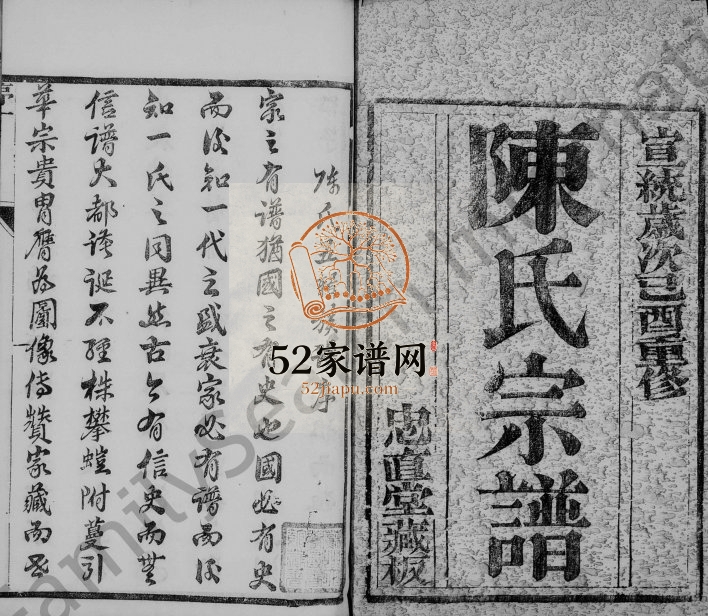 宣統歲次己酉重修
陳氏宗譜
忠直堂藏板
陳氏
族
序
家之有譜猶國之有史也國必有史
而後知一代之盛衰家必有譜而後
知一氏之同異然古今有信史而無
信譜大都謾誕不經株攀螘附蔓引
華宗貴胄贗為圖像傳贊家藏而
52家谱网
52jiapu.com
familysearch